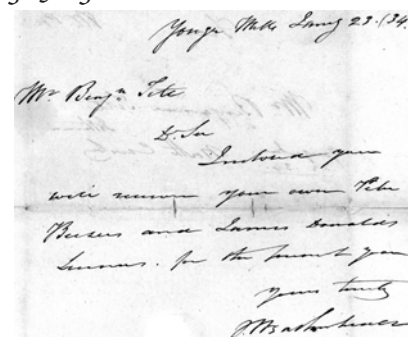 Yonge Mills Jany 23. /34.
Mr Benjn Tett
Dr Sir
Inclosed you
will receive your own Peter
and James Donalds
for the present year
yours truly